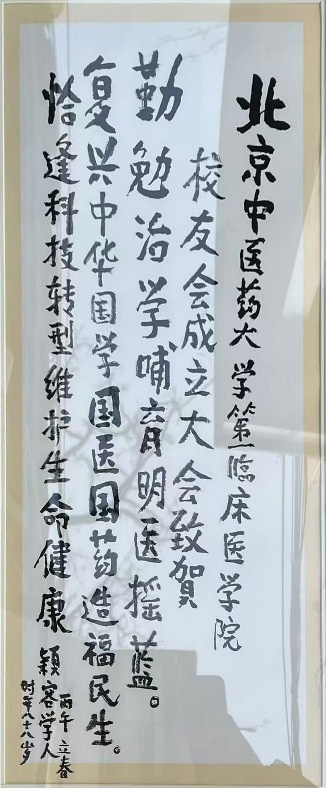 北京中医药大学第一临床医学院
校友会成立大会致賀
勤勉治学哺育明医摇藍。
复兴中华国学国医国药造福民生。
恰逢科技转型维护生命健康
颖客学人
丙午立春
时年八十八岁